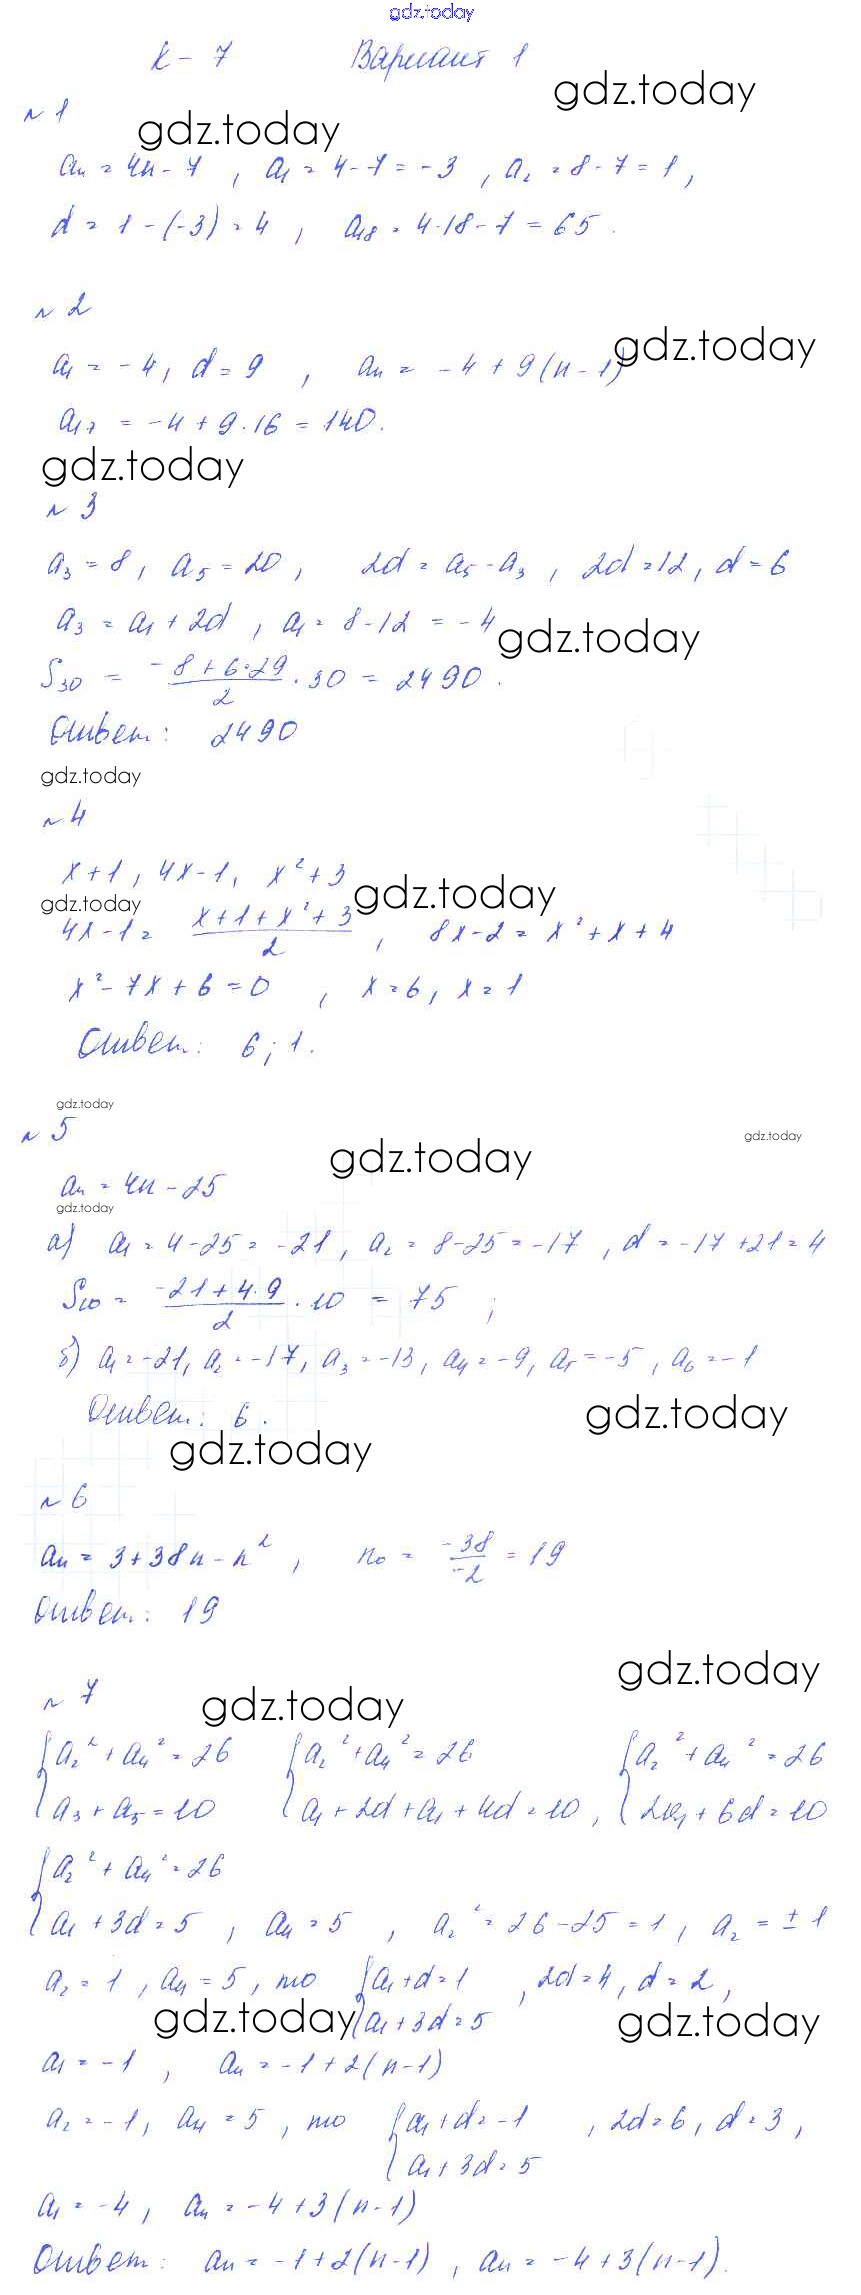 gdz.today
К - 7 Вариант 1
gdz.today
№ 1
gdz.today
aₙ = 4n - 7 , a₁ = 4 - 7 = -3 , a₂ = 8 - 7 = 1 ,
d = 1 - (-3) = 4 , a₁₈ = 4·18 - 7 = 65 .
№ 2
gdz.today
a₁ = -4 , d = 9 , aₙ = -4 + 9(n - 1)
a₁₇ = -4 + 9·16 = 140.
gdz.today
№ 3
a₃ = 8 , a₅ = 20 , 2d = a₅ - a₃ , 2d = 12 , d = 6
a₃ = a₁ + 2d , a₁ = 8 - 12 = -4
gdz.today
S₃₀ = (-8 + 6·29)/2 · 30 = 2490 .
Ответ: 2490
gdz.today
№ 4
x + 1 , 4x - 1 , x² + 3
gdz.today
gdz.today
4x - 1 = (x + 1 + x² + 3)/2 , 8x - 2 = x² + x + 4
x² - 7x + 6 = 0 , x = 6 , x = 1
Ответ: 6 ; 1.
gdz.today
№ 5
gdz.today
gdz.today
aₙ = 4n - 25
gdz.today
а) a₁ = 4 - 25 = -21 , a₂ = 8 - 25 = -17 , d = -17 + 21 = 4
S₁₀ = (-21 + 4·9)/2 · 10 = 75 ;
б) a₁ = -21 , a₂ = -17 , a₃ = -13 , a₄ = -9 , a₅ = -5 , a₆ = -1
Ответ: 6 .
gdz.today
gdz.today
№ 6
aₙ = 3 + 38n - n² , n₀ = -38/-2 = 19
Ответ: 19
gdz.today
№ 7
gdz.today
{ a₂² + a₄² = 26 { a₂² + a₄² = 26 { a₂² + a₄² = 26
a₃ + a₅ = 10 a₁ + 2d + a₁ + 4d = 10 , 2a₁ + 6d = 10
{ a₂² + a₄² = 26
a₁ + 3d = 5 , a₄ = 5 , a₂² = 26 - 25 = 1 , a₂ = ± 1
a₂ = 1 , a₄ = 5 , то { a₁ + d = 1 , 2d = 4 , d = 2 ,
a₁ + 3d = 5
gdz.today
gdz.today
a₁ = -1 , aₙ = -1 + 2(n - 1)
a₂ = -1 , a₄ = 5 , то { a₁ + d = -1 , 2d = 6 , d = 3 ,
a₁ + 3d = 5
a₁ = -4 , aₙ = -4 + 3(n - 1)
Ответ: aₙ = -1 + 2(n - 1) , aₙ = -4 + 3(n - 1).